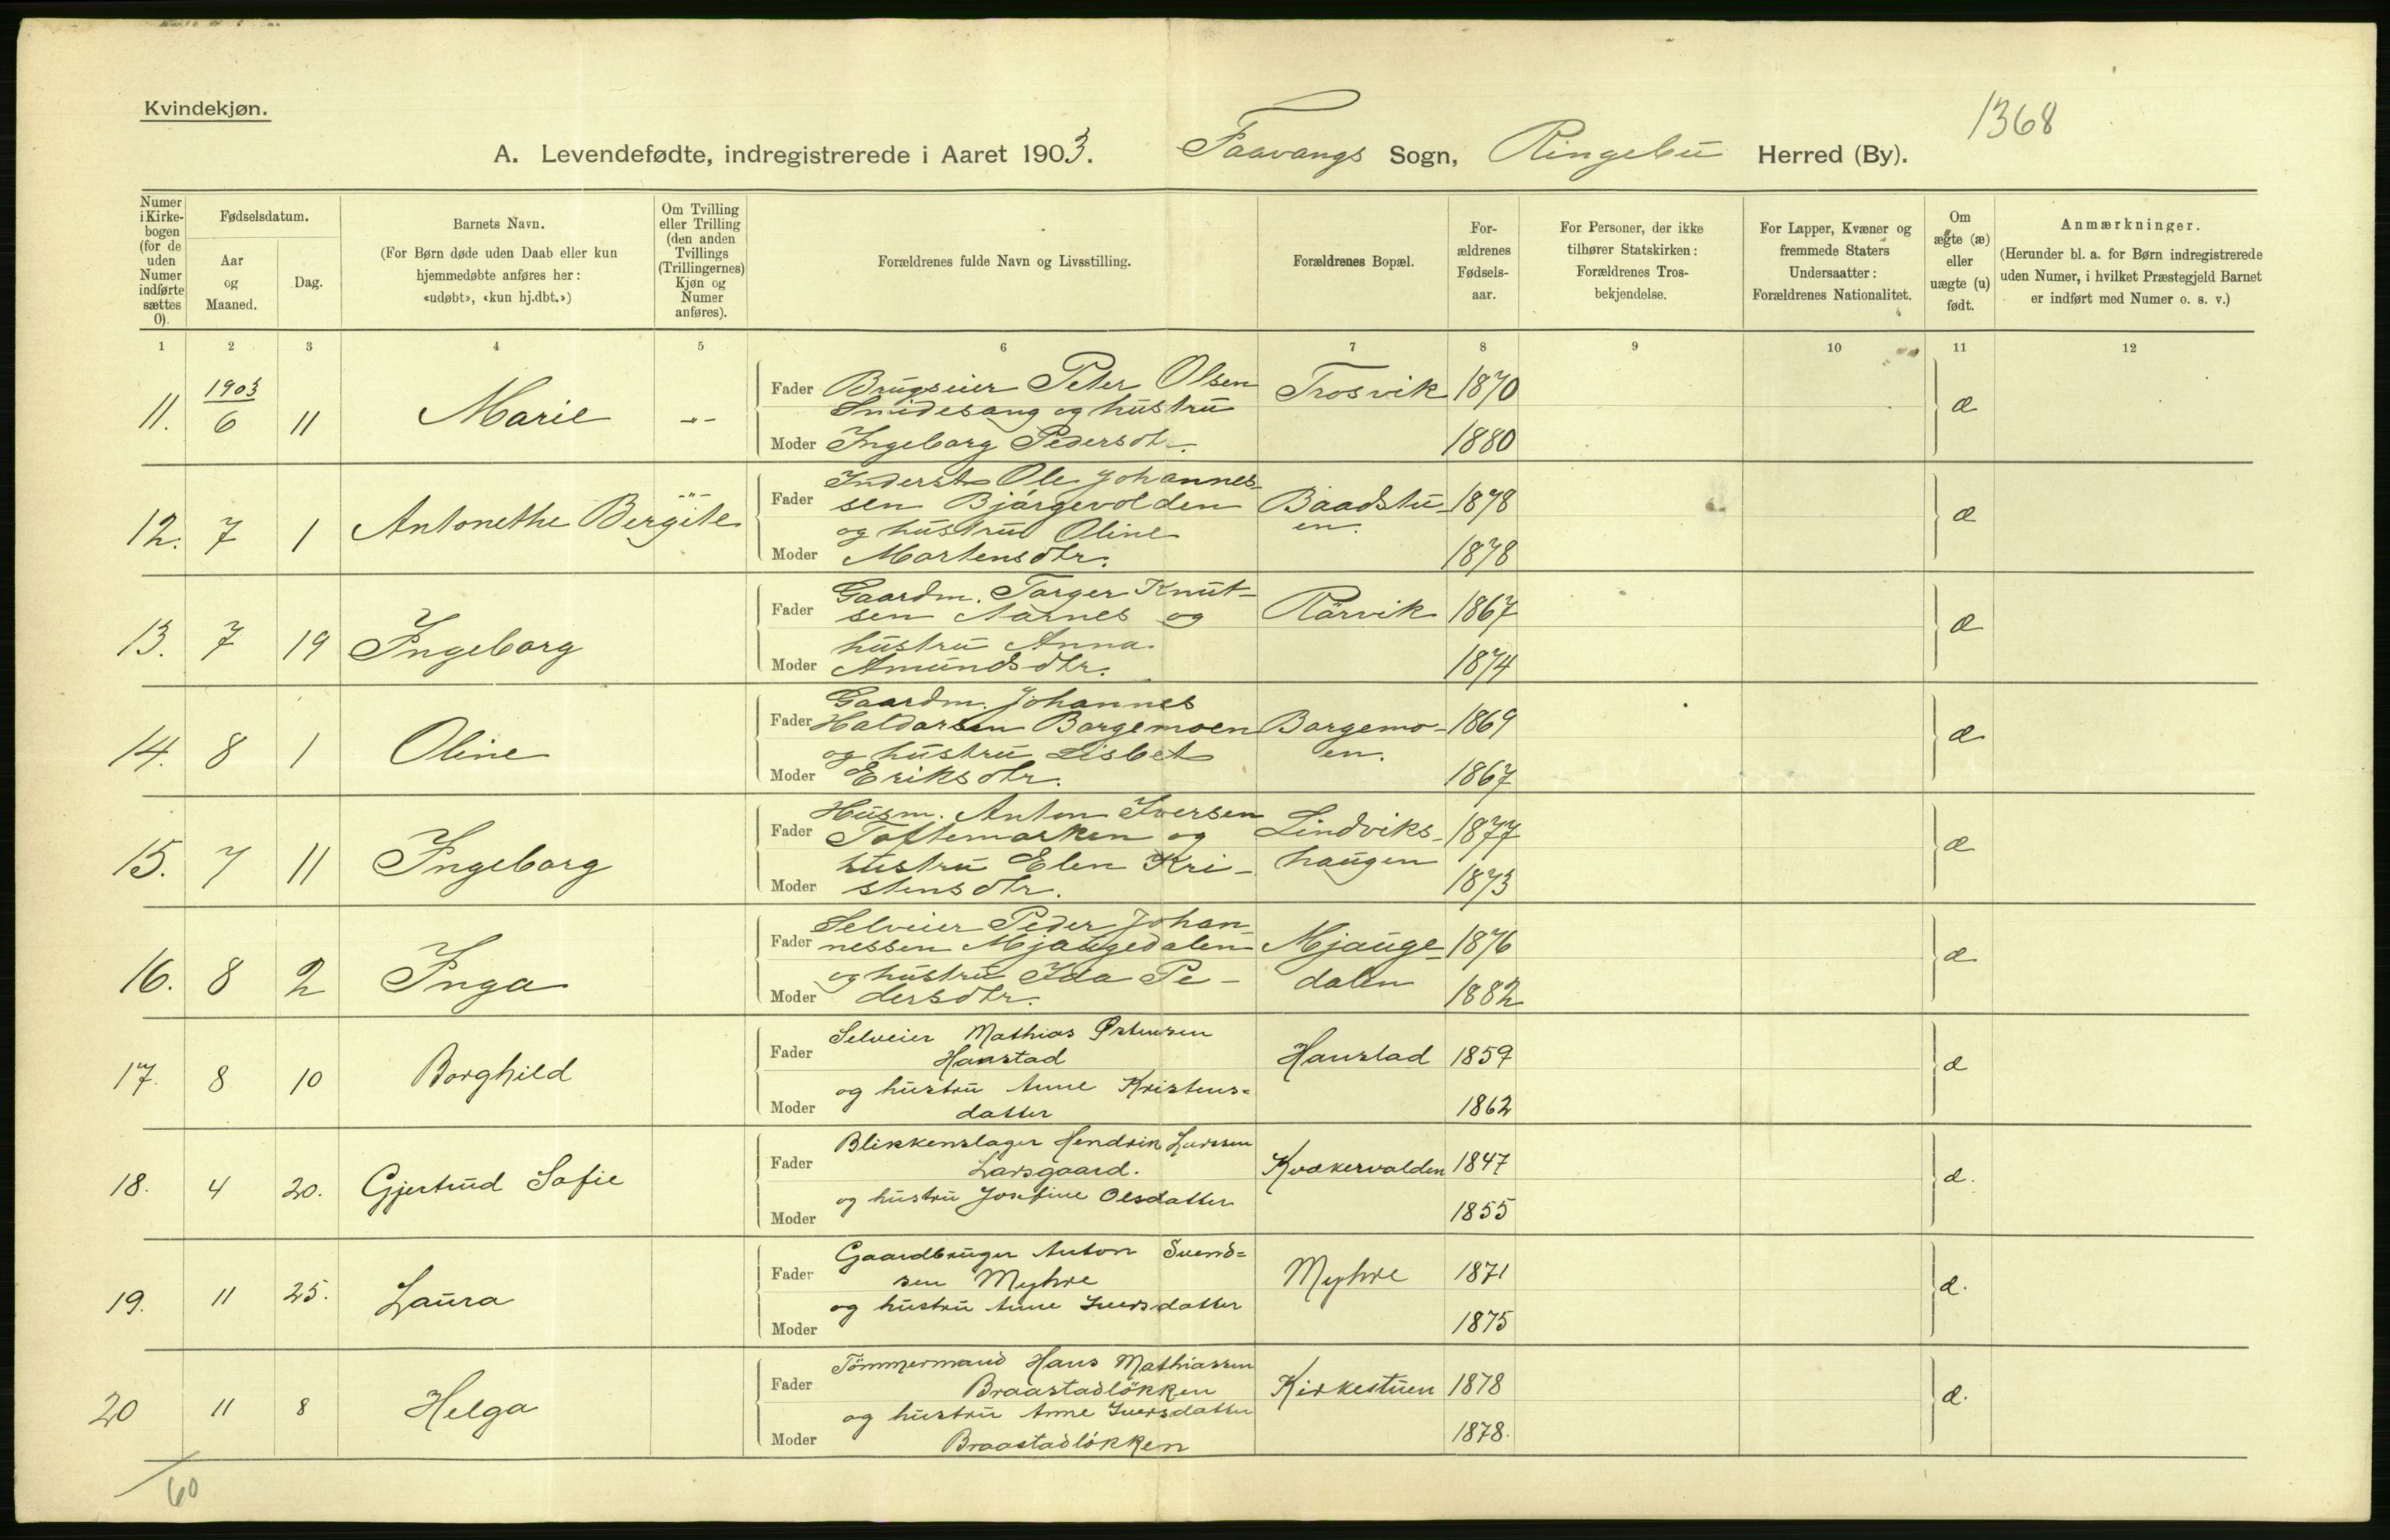 Kvindekjøn.
1368
A. Levendefødte, indregistrerede i Aaret 1903. Faavangs Sogn, Ringebu Herred (By).
Numer i Kirkebogen (for de uden Numer indførte sættes 0).
Fødselsdatum.
Aar og Maaned.
Dag.
Barnets Navn.
(For Børn døde uden Daab eller kun hjemmedøbte anføres her: «udøbt», «kun hj.dbt.»)
Om Tvilling eller Trilling (den anden Tvillings (Trillingernes) Kjøn og Numer anføres).
Forældrenes fulde Navn og Livsstilling.
Forældrenes Bopæl.
Forældrenes Fødselsaar.
For Personer, der ikke tilhører Statskirken: Forældrenes Trosbekjendelse.
For Lapper, Kvæner og fremmede Staters Undersaatter: Forældrenes Nationalitet.
Om ægte (æ) eller uægte (u) født.
Anmærkninger.
(Herunder bl. a. for Børn indregistrerede uden Numer, i hvilket Præstegjeld Barnet er indført med Numer o. s. v.)
1 2 3 4 5 6 7 8 9 10 11 12
11. 1903 6 11 Marie -"-
Fader Brugseier Peter Olsen Trosvik 1870 æ
Smidesang og hustru
Moder Ingeborg Pedersdt. 1880
12. 7 1 Antonethe Bergite -"-
Inderst Ole Johannes-
Fader sen Bjørgevolden Baadstu- 1878 æ
og hustru Oline en.
Moder Mortensdtr. 1878
13. 7 19 Ingeborg
Gaardm. Torger Knut-
Fader sen Aarnes og Rørvik 1867 æ
hustru Anna
Moder Amundsdtr. 1874
14. 8 1 Oline
Gaardm. Johannes
Fader Haldorsen Borgemoen Borgemo- 1869 æ
og hustru Lisbet en.
Moder Eriksdtr. 1867
15. 7 11 Ingeborg
Husm. Anton Iversen
Fader Toftemarken og Lindviks- 1877 æ
hustru Elen Kri- haugen
Moder stensdtr. 1873
16. 8 2 Inga
Selveier Peder Johan
Fader nessen Mjaugedalen Mjauge- 1876 æ
og hustru Ida Pe- dalen
Moder dersdtr. 1882
17. 8 10 Borghild
Selveier Mathias Østensen
Fader Hanstad Hanstad 1859 æ
og hustru Anne Kristens=
Moder datter 1862
18. 4 20. Gjertrud Sofie
Blikkenslager Hendrik Larsen
Fader Larsgaard. Kvækervolden 1847 æ.
og hustru Josefine Olsdatter
Moder 1855
19. 11 25. Laura
Gaardbruger Anton Svend=
Fader sen Myhre Myhre 1871 æ.
og hustru Anne Iversdatter
Moder 1875
20 11 8 Helga
Tömmermand Hans Mathiassen
Fader Braastadlökken Kirkestuen 1878 æ.
og hustru Anne Iversdatter
Moder Braastadlökken 1878.
60